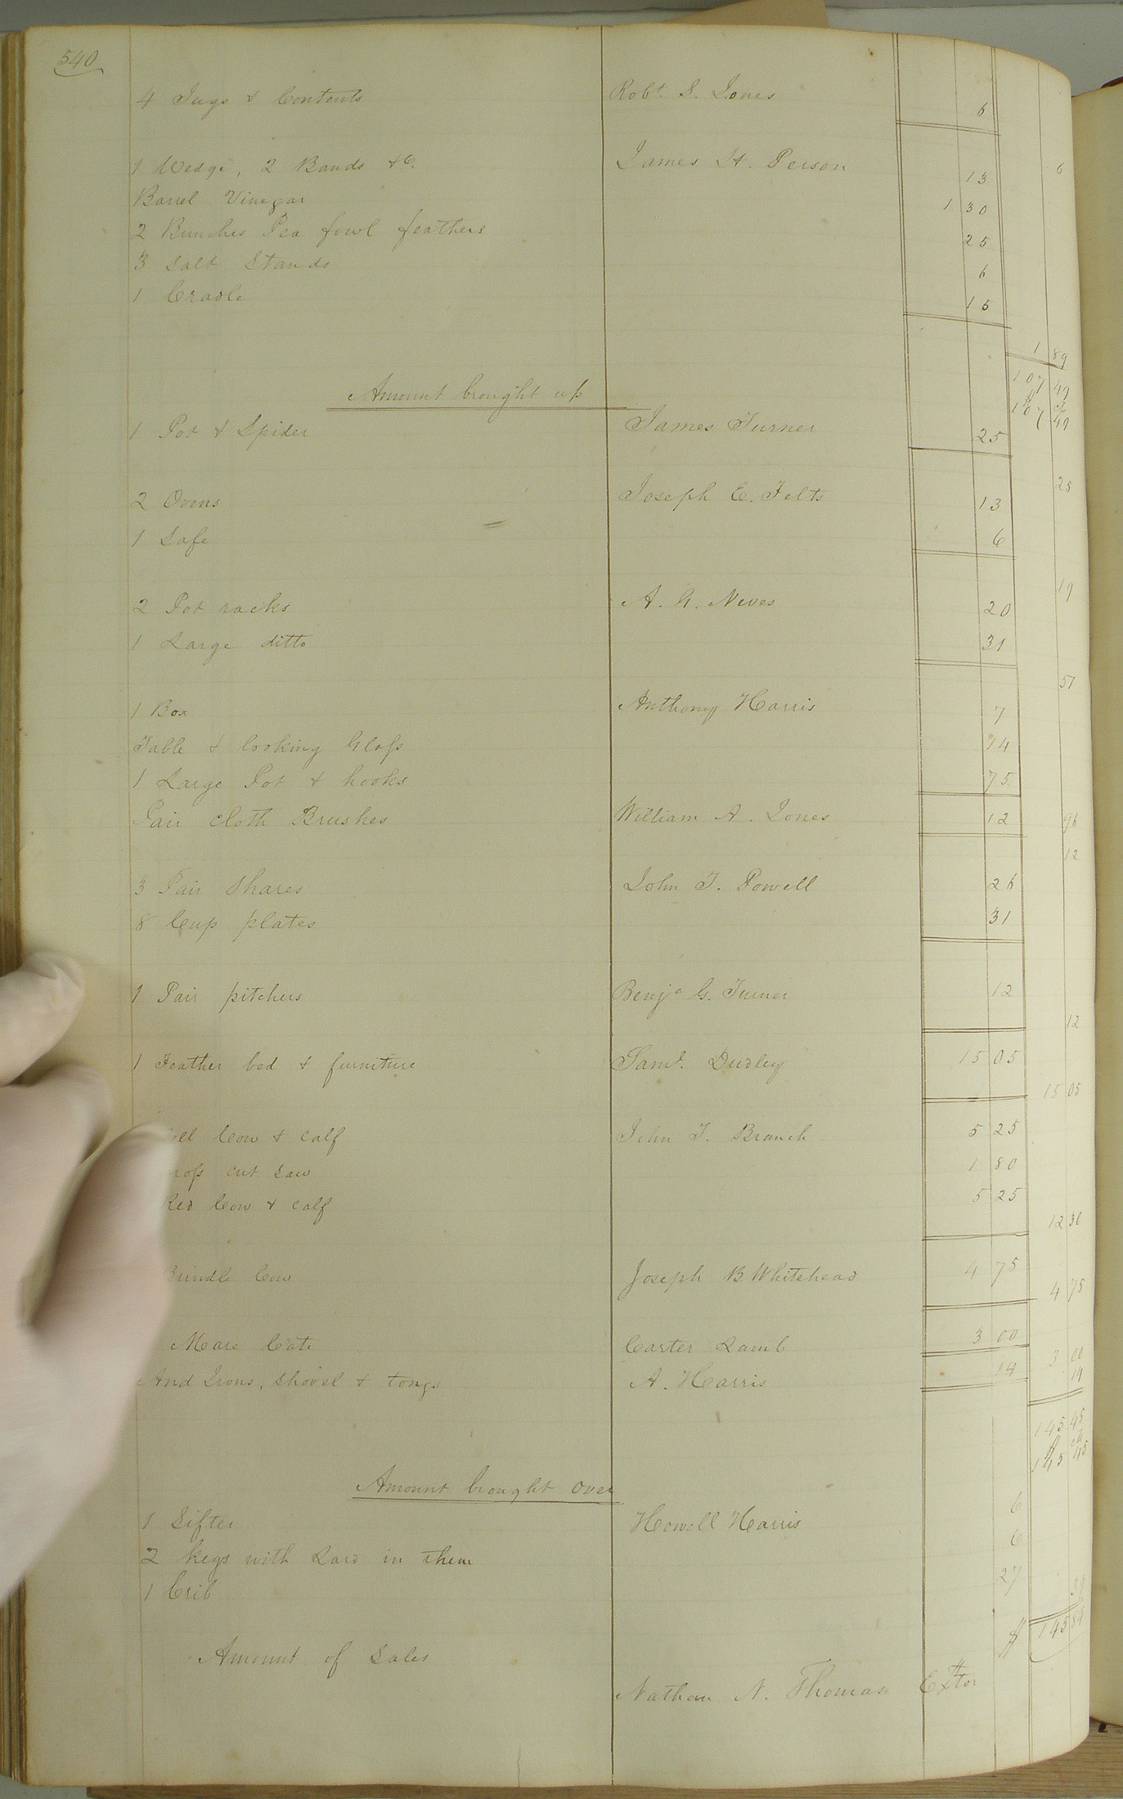 540
4 Jugs & Contents Robt. S. Jones 6
6
1 Wedge, 2 Bands &C. James H. Person 13
Barrel Vinegar 1 30
2 Bunches Pea fowl feathers 25
3 Salt Stands 6
1 Cradle 15
1 89
107 49
Amount brought up 107 49
1 Pot & Spider James Turner 25
25
2 Ovens Joseph E. Felts 13
1 Safe 6
19
2 Pot racks A. G. Neves 20
1 Large ditto 31
51
1 Box Anthony Harris 7
Table & looking Glass 14
1 Large Pot & hooks 75
96
Pair cloth Brushes William A. Jones 12
12
3 Pair Shares John T. Powell 26
8 Cup plates 31
1 Pair pitchers Benja G. Turner 12
12
1 Feather bed & furniture Saml. Dudley 15 05
15 05
Cow & calf John T. Branch 5 25
cut Saw 1 80
Red Cow & calf 5 25
12 30
Brindle Cow Joseph B. Whitehead 4 75
4 75
Mare Cate Carter Lamb 3 00
3 00
And Irons, Shovel & tongs A. Harris 14
14
145 45
Amount brought over 145 45
1 Sifter Howell Harris 6
2 kegs with Lard in them 6
1 Crib 27
39
Amount of Sales $ 145 84
Nathan N. Thomas Extor